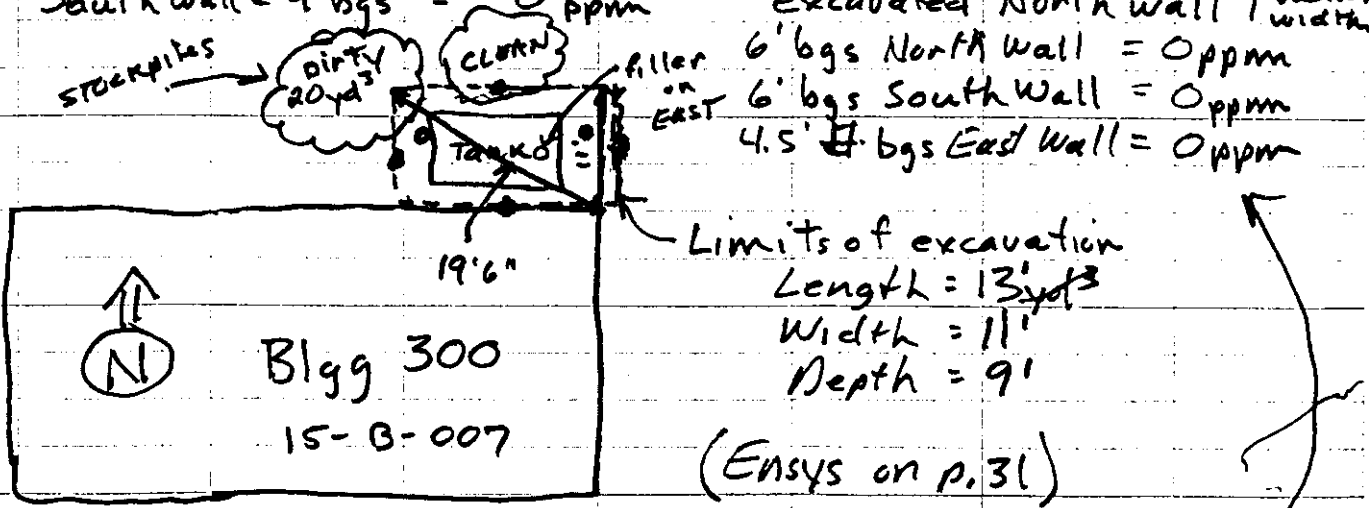 South Wall = 4' bgs = 0 ppm
Excavated North Wall 1'
width
6' bgs North Wall = 0 ppm
6' bgs South Wall = 0 ppm
4.5' bgs East Wall = 0 ppm
STOCKPILES
DIRTY
20yd³
CLEAN
filler
on
EAST
Tank
19'6"
Limits of excavation
Length = 13' yd³
Width = 11'
Depth = 9'
N
Blgg 300
15-B-007
(Ensys on p.31)